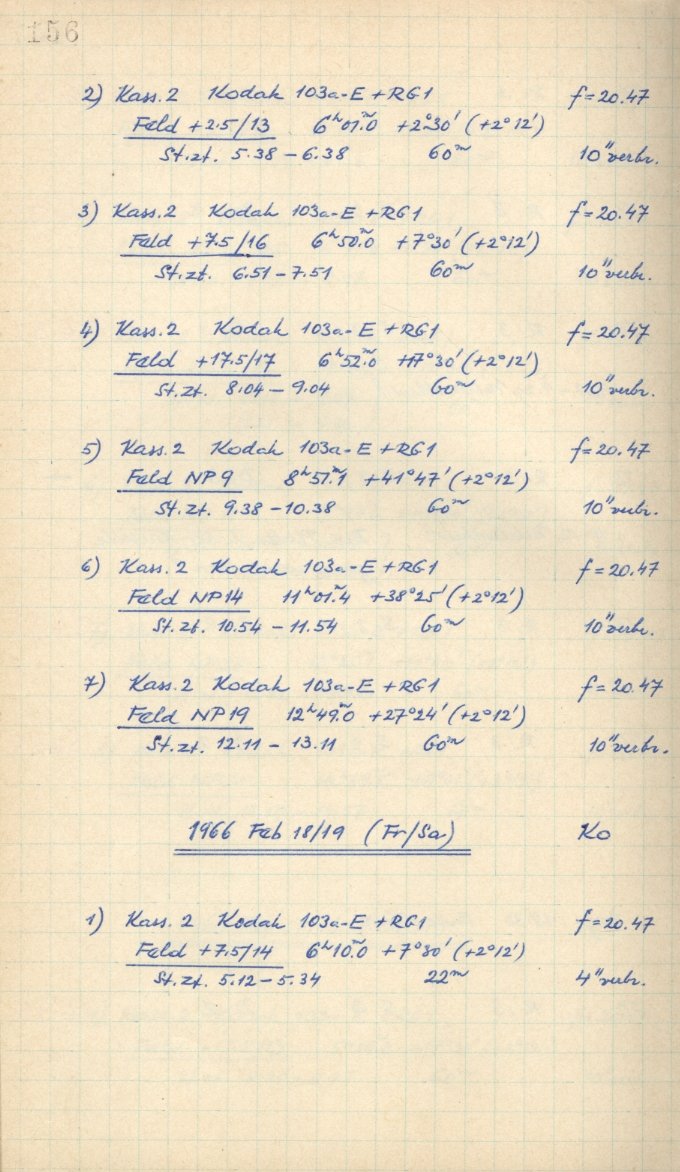 156
2) Kass. 2 Kodak 103a-E + RG1 f = 20.47
Feld +2.5/13 6ʰ01ᵐ.0 +2°30' (+2°12')
St.zt. 5.38 – 6.38 60ᵐ 10" verbr.
3) Kass. 2 Kodak 103a-E + RG1 f = 20.47
Feld +7.5/16 6ʰ50ᵐ.0 +7°30' (+2°12')
St.zt. 6.51 – 7.51 60ᵐ 10" verbr.
4) Kass. 2 Kodak 103a-E + RG1 f = 20.47
Feld +17.5/17 6ʰ52ᵐ.0 +17°30' (+2°12')
St.zt. 8.04 – 9.04 60ᵐ 10" verbr.
5) Kass. 2 Kodak 103a-E + RG1 f = 20.47
Feld NP 9 8ʰ51ᵐ.1 +41°47' (+2°12')
St.zt. 9.38 – 10.38 60ᵐ 10" verbr.
6) Kass. 2 Kodak 103a-E + RG1 f = 20.47
Feld NP14 11ʰ01ᵐ.4 +38°25' (+2°12')
St.zt. 10.54 – 11.54 60ᵐ 10" verbr.
7) Kass. 2 Kodak 103a-E + RG1 f = 20.47
Feld NP19 12ʰ49ᵐ.0 +27°24' (+2°12')
St.zt. 12.11 – 13.11 60ᵐ 10" verbr.
1966 Feb 18/19 (Fr/Sa) Ko
1) Kass. 2 Kodak 103a-E + RG1 f = 20.47
Feld +7.5/14 6ʰ10ᵐ.0 +7°30' (+2°12')
St.zt. 5.12 – 5.34 22ᵐ 4" verbr.